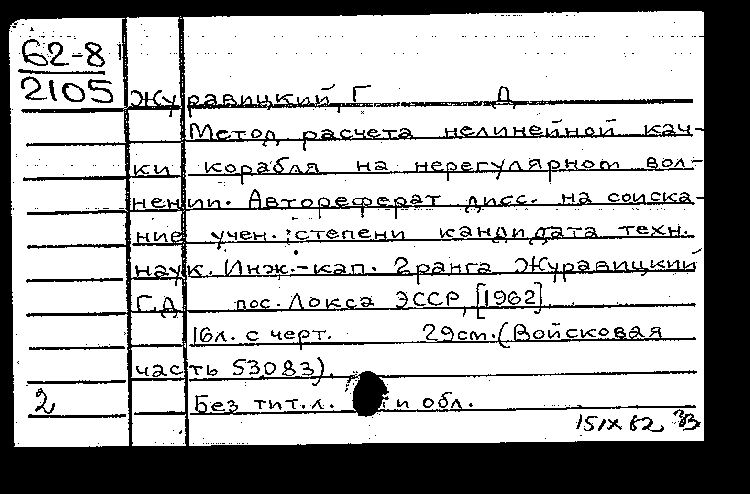 62-8
2105
Журавицкий, Г Д
Метод расчета нелинейной кач-
ки корабля на нерегулярном вол-
нении. Автореферат дисс. на соиска-
ние учен. степени кандидата техн.
наук. Инж.-кап. 2 ранга Журавицкий
Г.Д пос. Локса ЭССР, [1962].
16л. с черт. 29см. (Войсковая
часть 53083).
2 Без тит. л. и обл.
15 IX 62